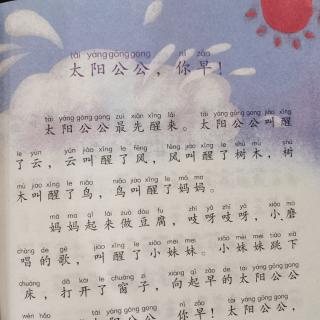 tài yáng gōng gong nǐ zǎo
太阳公公，你早！
tài yáng gōng gong zuì xiān xǐng lái tài yáng gōng gong jiào xǐng
太阳公公最先醒来。太阳公公叫醒
le yún yún jiào xǐng le fēng fēng jiào xǐng le shù mù shù
了云，云叫醒了风，风叫醒了树木，树
mù jiào xǐng le niǎo niǎo jiào xǐng le mā ma
木叫醒了鸟，鸟叫醒了妈妈。
mā ma qǐ lái zuò dòu fu zī ya zī ya xiǎo mò
妈妈起来做豆腐，吱呀吱呀，小磨
chàng de gē jiào xǐng le xiǎo mèi mei xiǎo mèi mei tiào xià
唱的歌，叫醒了小妹妹。小妹妹跳下
chuáng dǎ kāi le chuāng zi xiàng qǐ zǎo de tài yáng gōng gong
床，打开了窗子，向起早的太阳公公
wèn hǎo tài yáng gōng gong nǐ zǎo tài yáng gōng gong
问好：太阳公公，你早！太阳公公，